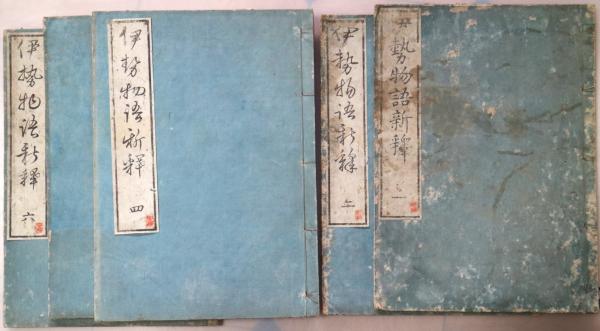 伊勢物語新釋 六
伊勢物語新釋 四
伊勢物語新釋 上
伊勢物語新釋 一